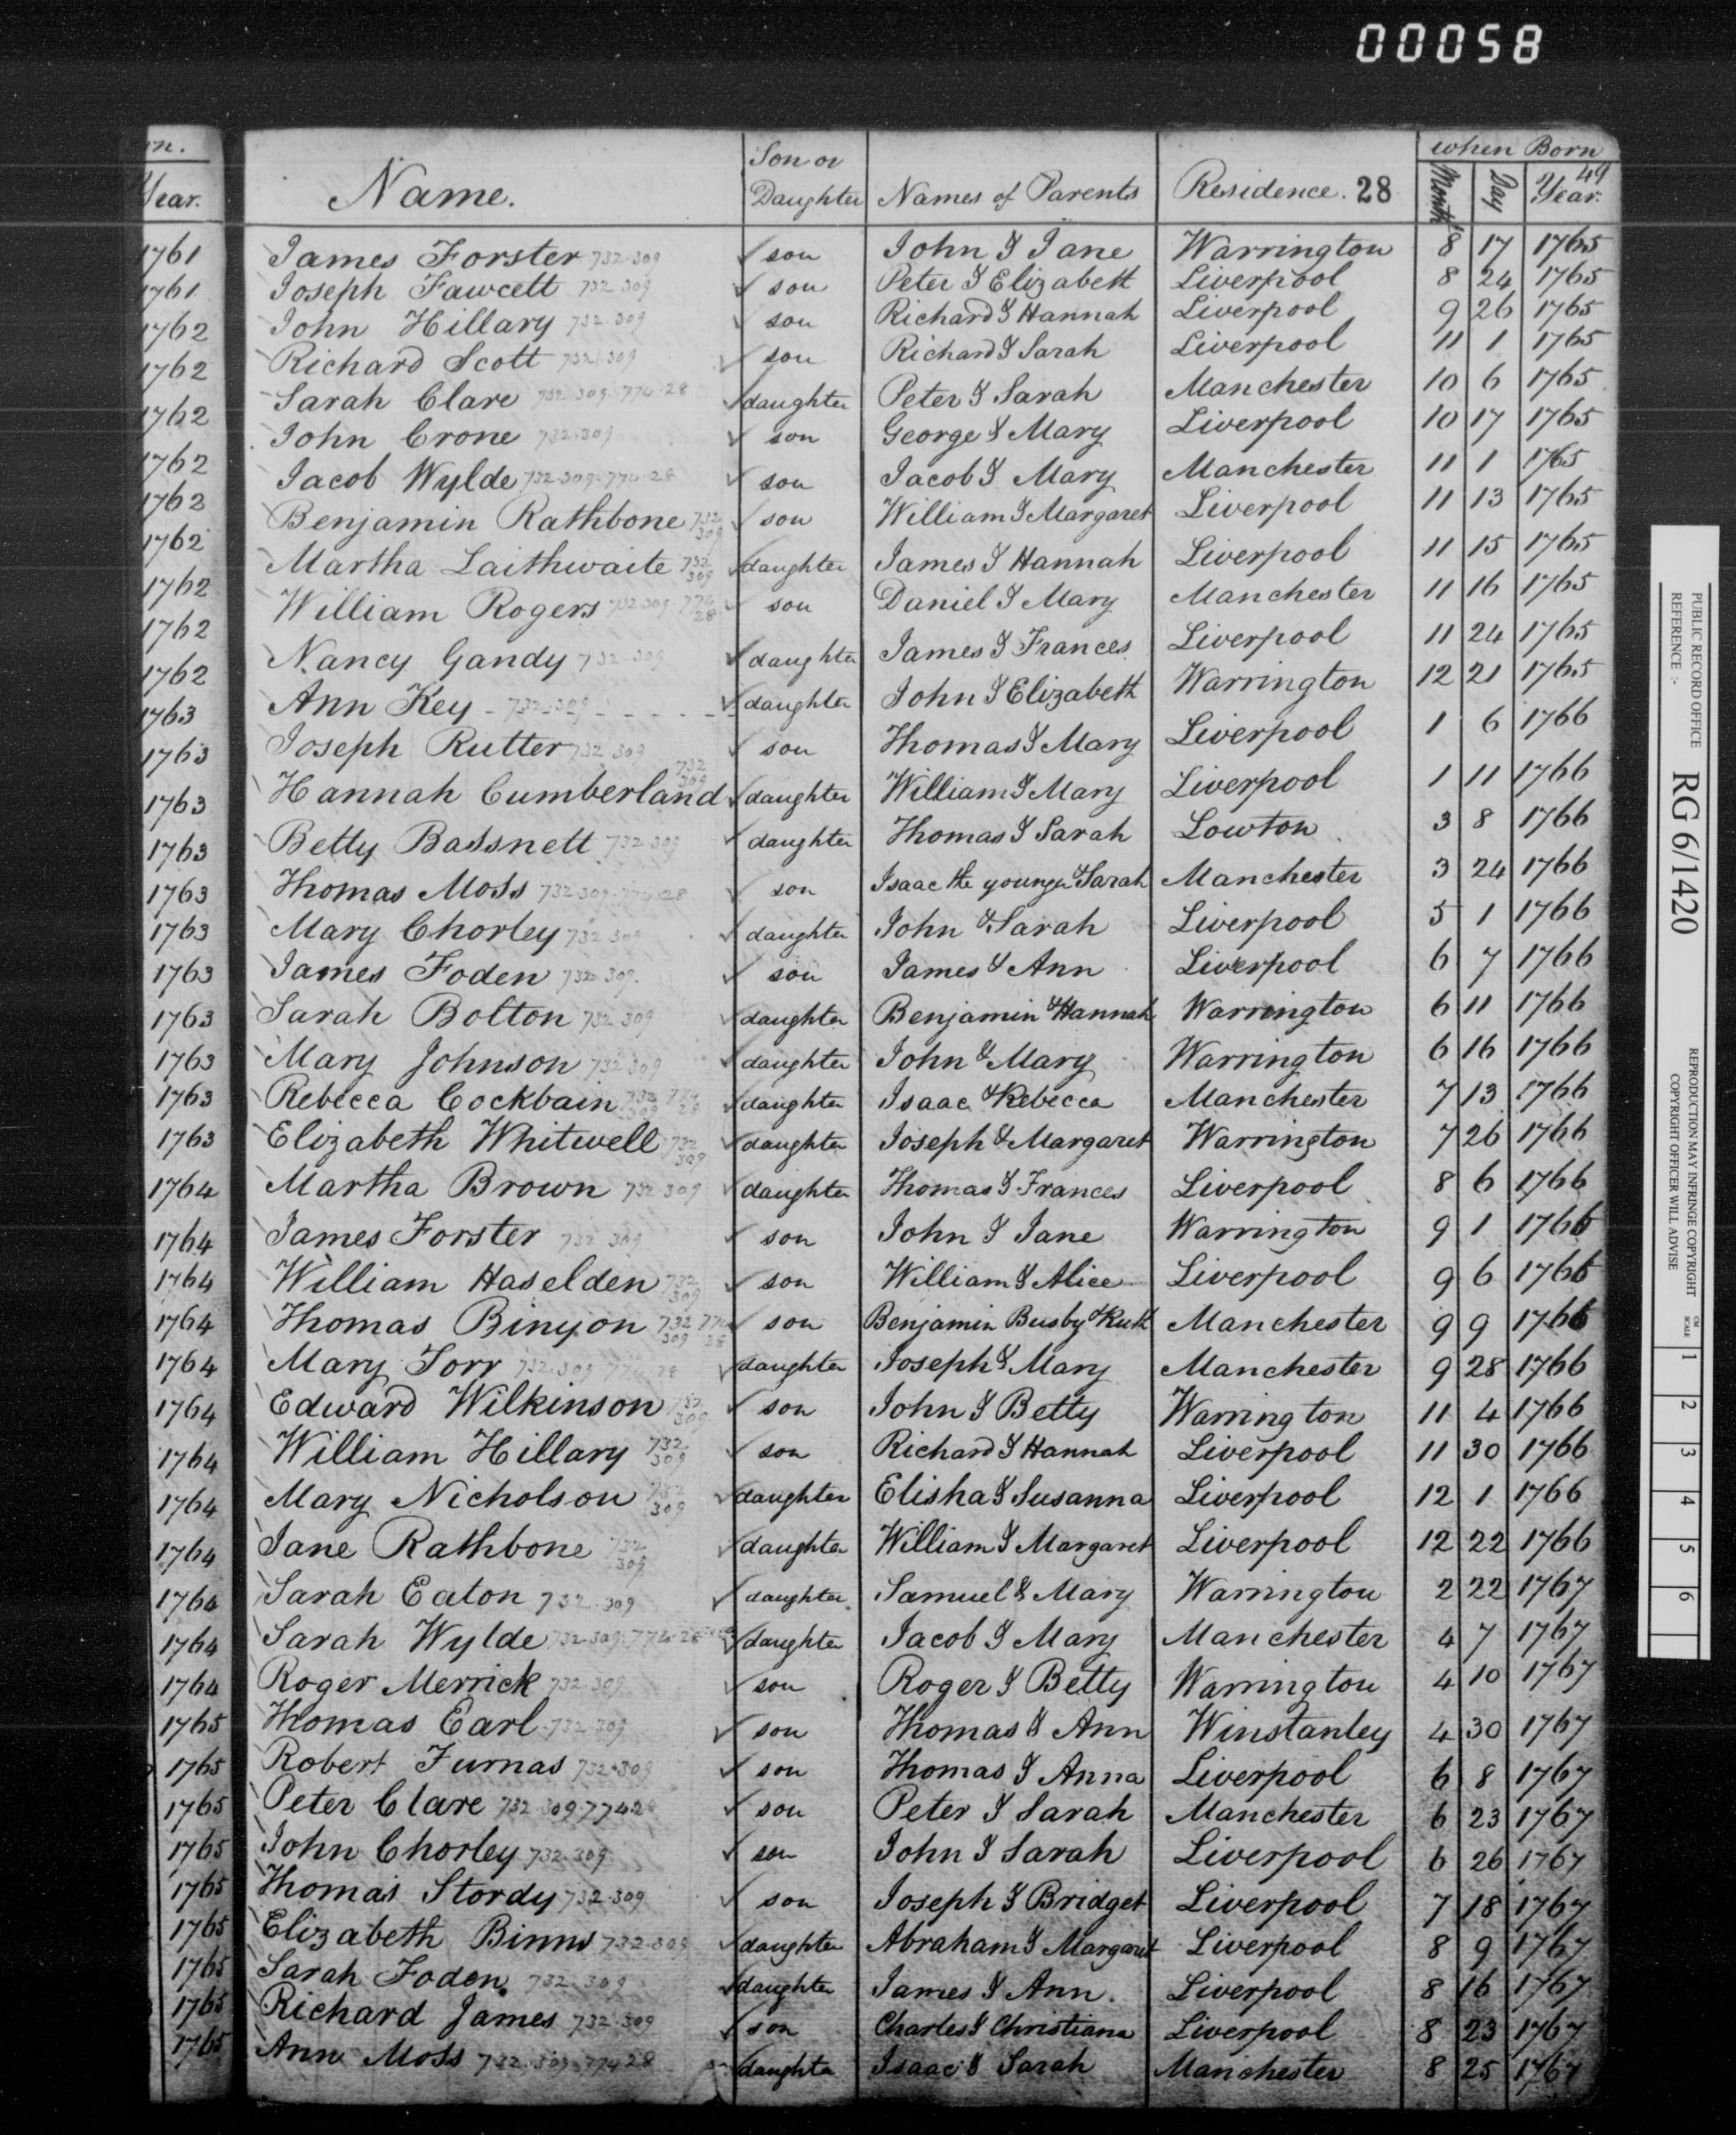 00058
when Born
49
Son or
Name. Daughter Names of Parents Residence. 28 Month Day Year.
Year.
1761
1761
1762
1762
1762
1762
1762
1762
1762
1762
1762
1763
1763
1763
1763
1763
1763
1763
1763
1763
1763
1763
1764
1764
1764
1764
1764
1764
1764
1764
1764
1764
1764
1764
1765
1765
1765
1765
1765
1765
1765
1765
1765
James Forster 732.309 son John & Jane Warrington 8 17 1765
Joseph Fawcett 732.309 son Peter & Elizabeth Liverpool 8 24 1765
John Hillary 732.309 son Richard & Hannah Liverpool 9 26 1765
Richard Scott 732.309 son Richard & Sarah Liverpool 11 1 1765
Sarah Clare 732.309.774.28 daughter Peter & Sarah Manchester 10 6 1765
John Crone 732.309 son George & Mary Liverpool 10 17 1765
Jacob Wylde 732.309.774.28 son Jacob & Mary Manchester 11 1 1765
Benjamin Rathbone 732 309 son William & Margaret Liverpool 11 13 1765
Martha Laithwaite 732 309 daughter James & Hannah Liverpool 11 15 1765
William Rogers 732.309.774 28 son Daniel & Mary Manchester 11 16 1765
Nancy Gandy 732.309 daughter James & Frances Liverpool 11 24 1765
Ann Key 732.309 daughter John & Elizabeth Warrington 12 21 1765
Joseph Rutter 732.309 son Thomas & Mary Liverpool 1 6 1766
Hannah Cumberland 732 309 daughter William & Mary Liverpool 1 11 1766
Betty Bassnett 732.309 daughter Thomas & Sarah Lowton 3 8 1766
Thomas Moss 732.309.774.28 son Isaac the younger & Sarah Manchester 3 24 1766
Mary Chorley 732.309 daughter John & Sarah Liverpool 5 1 1766
James Foden 732.309. son James & Ann Liverpool 6 7 1766
Sarah Bolton 732.309 daughter Benjamin & Hannah Warrington 6 11 1766
Mary Johnson 732.309 daughter John & Mary Warrington 6 16 1766
Rebecca Cockbain 732 774 309 28 daughter Isaac & Rebecca Manchester 7 13 1766
Elizabeth Whitwell 732 309 daughter Joseph & Margaret Warrington 7 26 1766
Martha Brown 732.309 daughter Thomas & Frances Liverpool 8 6 1766
James Forster 732.309 son John & Jane Warrington 9 1 1766
William Haselden 732 309 son William & Alice Liverpool 9 6 1766
Thomas Binyon 732 774 309 28 son Benjamin Busby & Ruth Manchester 9 9 1766
Mary Torr 732.309.774.28 daughter Joseph & Mary Manchester 9 28 1766
Edward Wilkinson 732 309 son John & Betty Warrington 11 4 1766
William Hillary 732 309 son Richard & Hannah Liverpool 11 30 1766
Mary Nicholson 732 309 daughter Elisha & Susanna Liverpool 12 1 1766
Jane Rathbone 732 309 daughter William & Margaret Liverpool 12 22 1766
Sarah Eaton 732.309 daughter Samuel & Mary Warrington 2 22 1767
Sarah Wylde 732.309.774.28 daughter Jacob & Mary Manchester 4 7 1767
Roger Merrick 732.309 son Roger & Betty Warrington 4 10 1767
Thomas Earl 732.309 son Thomas & Ann Winstanley 4 30 1767
Robert Furnas 732.309 son Thomas & Anna Liverpool 6 8 1767
Peter Clare 732.309.774 28 son Peter & Sarah Manchester 6 23 1767
John Chorley 732.309 son John & Sarah Liverpool 6 26 1767
Thomas Stordy 732.309 son Joseph & Bridget Liverpool 7 18 1767
Elizabeth Binns 732.309 daughter Abraham & Margaret Liverpool 8 9 1767
Sarah Foden 732.309 daughter James & Ann. Liverpool 8 16 1767
Richard James 732.309 son Charles & Christiana Liverpool 8 23 1767
Ann Moss 732.309.774 28 daughter Isaac & Sarah Manchester 8 25 1767
PUBLIC RECORD OFFICE
REFERENCE :-
RG 6/1420
REPRODUCTION MAY INFRINGE COPYRIGHT
COPYRIGHT OFFICER WILL ADVISE
CM SCALE
1 2 3 4 5 6